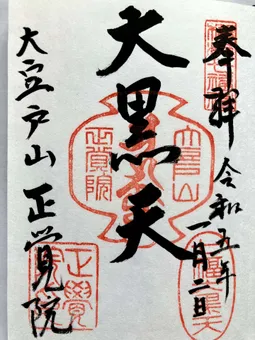 奉拝
令和五年
一月二日
大黒天
大豆戸山 正覚院
正覺院